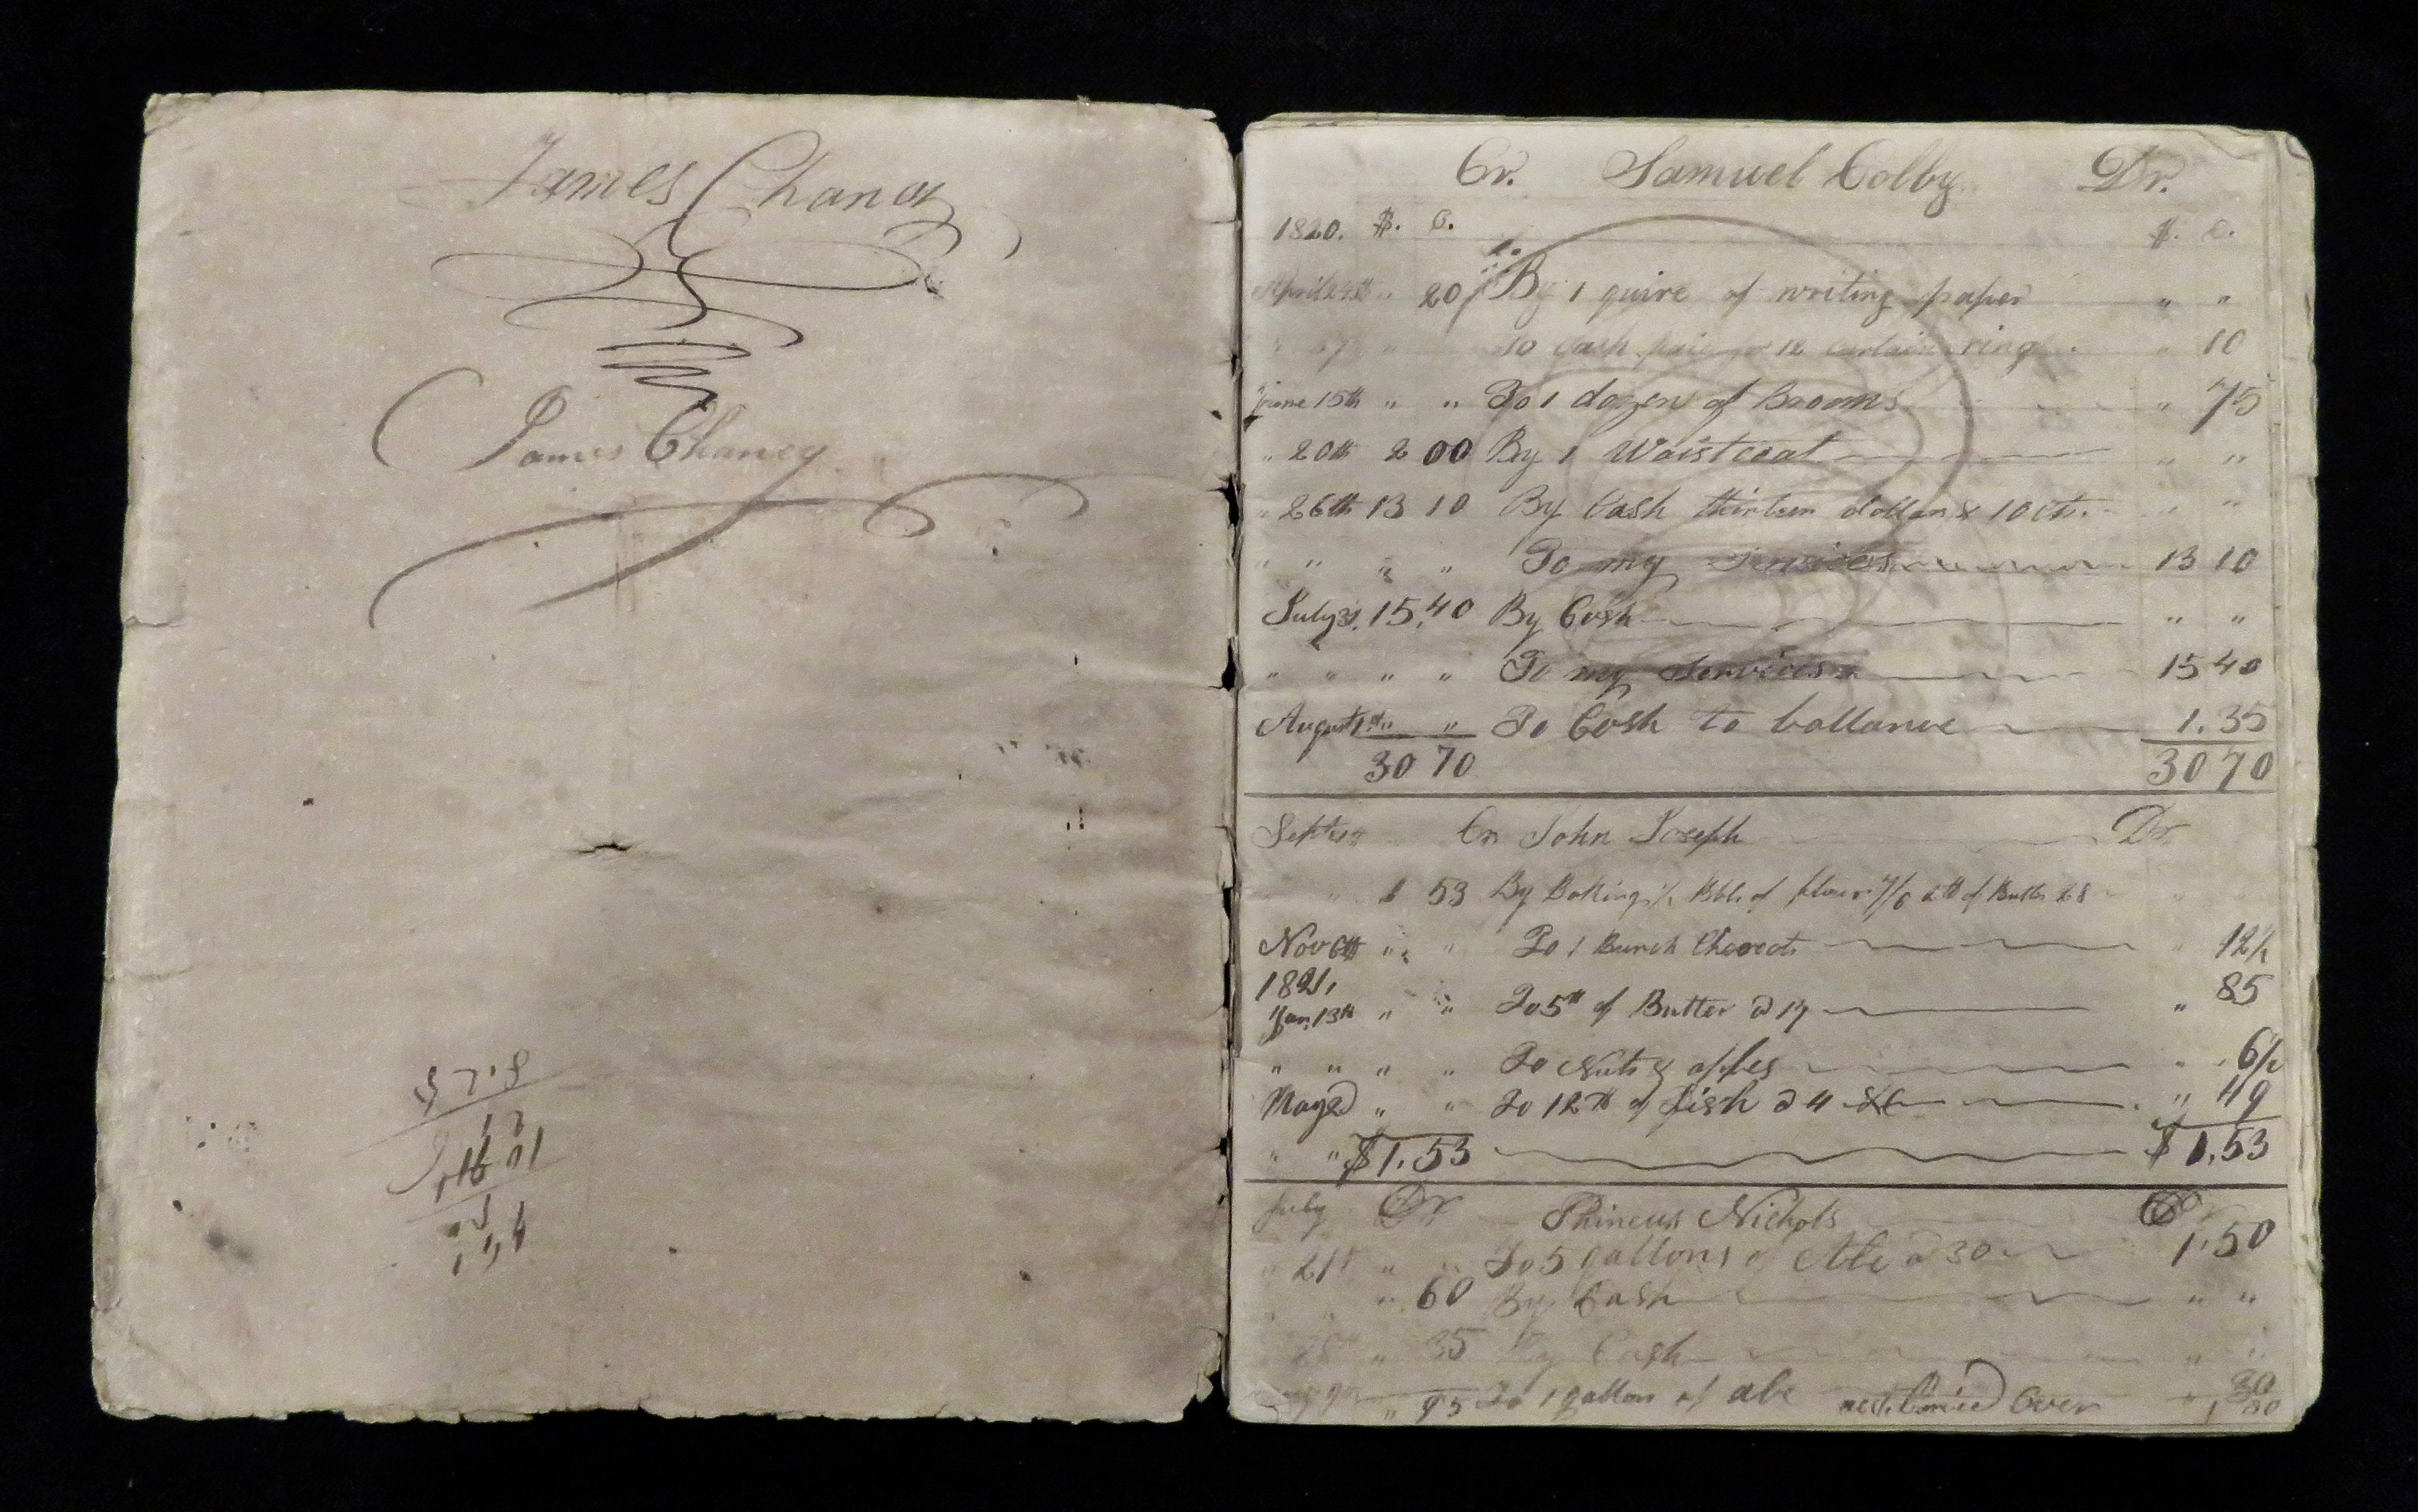 James Chaney
James Chaney
Cr. Samuel Colby Dr.
1820. $. C. $. C.
April 24th " 20 By 1 quire of writing paper " "
" " To Cash paid for 12 curtain rings " 10
June 15th " " To 1 dozen of Brooms " 75
" 20th 2 00 By 1 Waistcoat " "
" 26th 13 10 By Cash thirteen dollars & 10 cts. " "
" " " " To my Services 13 10
July 31. 15.40 By Cash " "
" " " " To my Services 15 40
August 1st " " To Cash to ballance 1.35
30 70 30 70
Cr John Joseph Dr
" 1 53 By Baking 1/2 Bbl of flour 7/6 2 lb of Butter 28
Nov 6th " " To 1 Bunch 12 1/2
1821,
Jan, 13th " " To 5 lb of Butter @ 17 " 85
" " " " To Nuts & apples " 6 1/2
May 2d " " To 12 lb of fish @ 4 " 49
" " $1.53 $1,53
July Dr Phineus Nichols Cr
" 21st " " To 5 gallons of Ale @ 30 1.50
" 60 By Cash " "
" 35 By Cash " "
" 95 To 1 gallon of ale Carried Over " 30